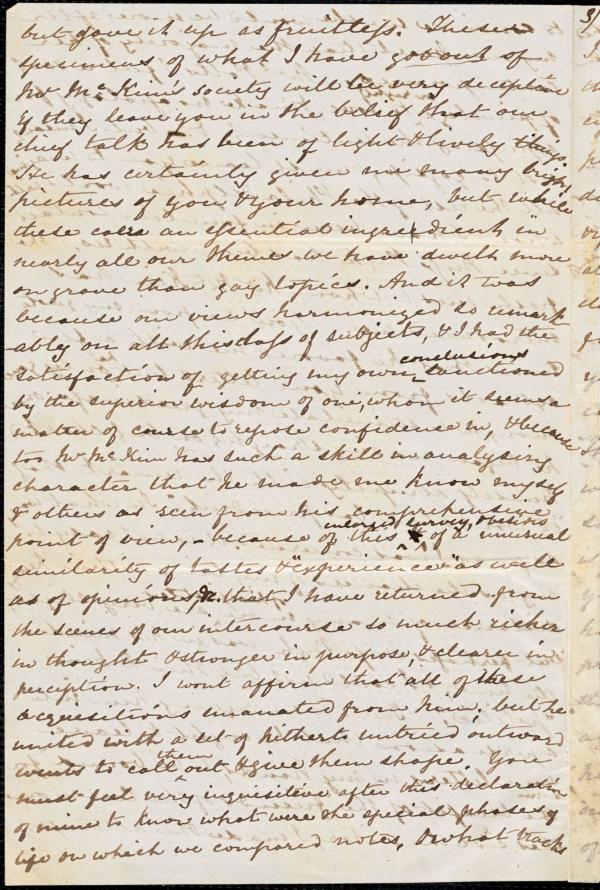 but gave it up as fruitless. These
specimens of what I have got out of
Mr McKim's society will be very deceptive
if they leave you in the belief that our
chief talk has been of light & lively things.
He has certainly given me many bright
pictures of you & your home, but while
these were an essential ingredient in
nearly all our themes we have dwelt more
on grave than gay topics. And it was
because our views harmonized so remark-
ably on all this class of subjects, & I had the
satisfaction of getting my own conclusions sanctioned
by the superior wisdom of one, whom it seems a
matter of course to repose confidence in, & because
too Mr McKim has such a skill in analysing
character that he made me know myself
& others as seen from his comprehensive
point of view, - because of this enlarged survey, & besides
of a unusual
similarity of tastes & "experience" as well
as of opinions &c. that I have returned from
the scenes of our intercourse so much richer
in thought & stronger in purpose, & clearer in
perception. I wont affirm that all of these
acquisitions emanated from him; but he
united with a set of hitherto untried outward
events to call them out & give them shape. You
must feel very inquisitive after this declaration
of mine to know what were the special phases of
life on which we compared notes, & what tracks